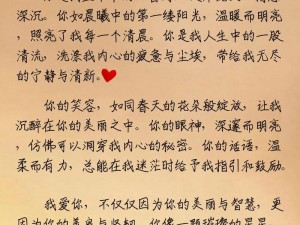 深沉。你如晨曦中的第一缕阳光，温暖而明亮
，照亮了我每一个清晨。你是我人生中的一股
清流，洗涤我内心的疲惫与尘埃，带给我无尽
的宁静与清新。
你的笑容，如同春天的花朵般绽放，让我
沉醉在你的美丽之中。你的眼神，深邃而明亮
，仿佛可以洞穿我内心的秘密。你的话语，温
柔而有力，总能在我迷茫时给予我指引和鼓励。
我爱你，不仅仅因为你的美丽与智慧，更